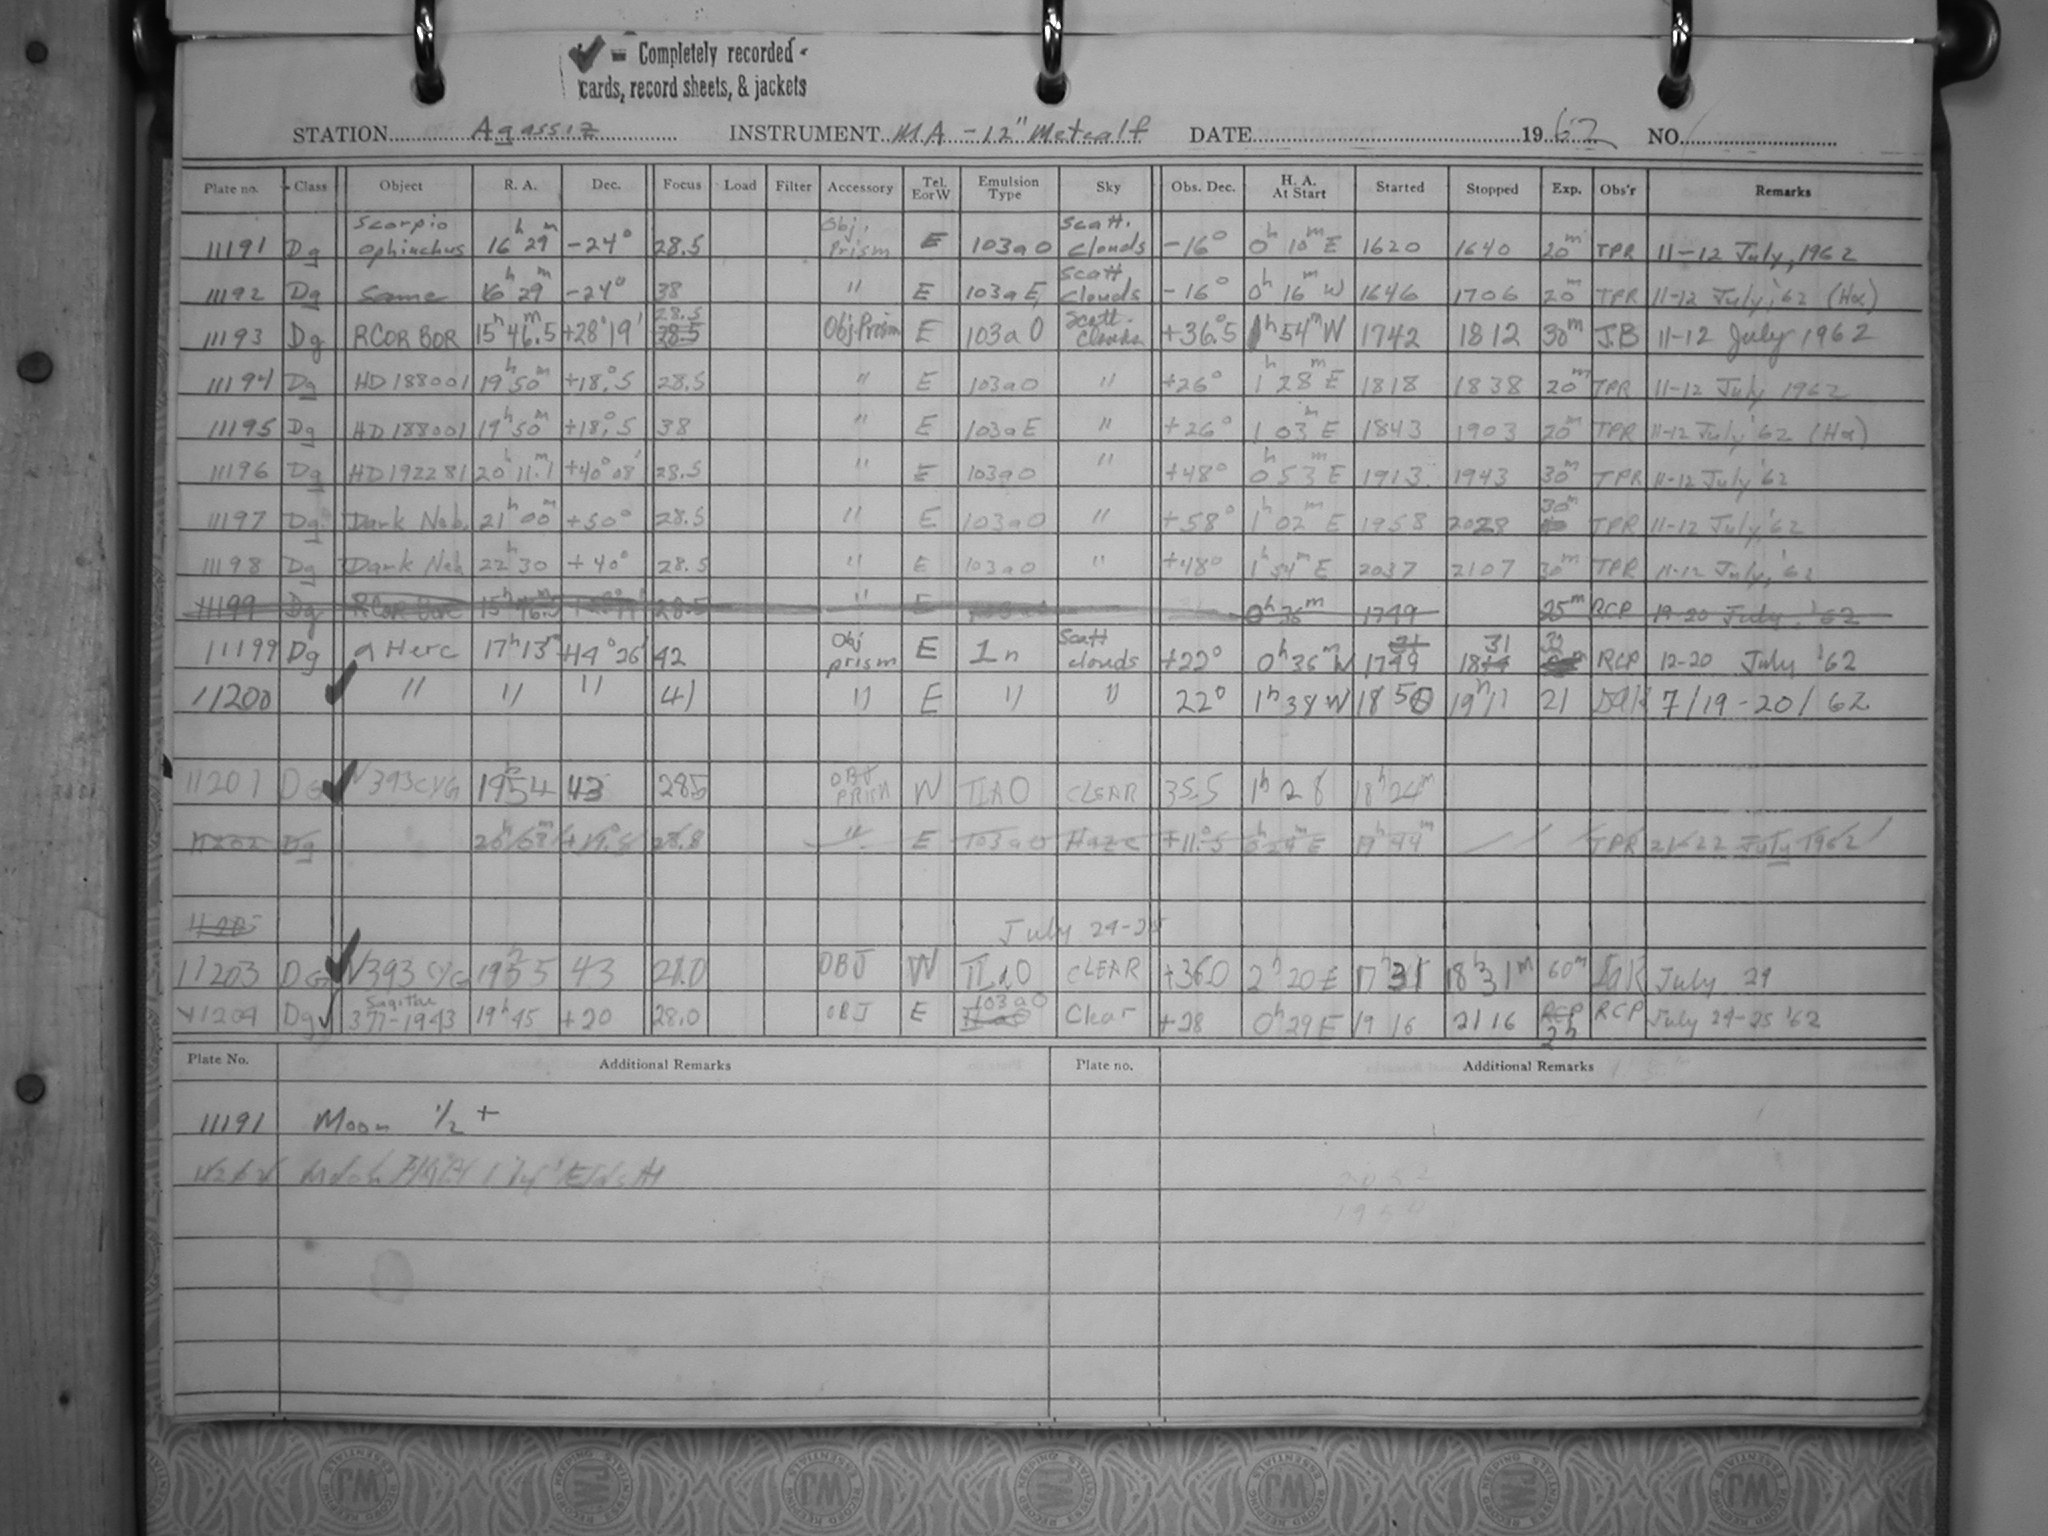 ✓ = Completely recorded - cards, record sheets, & jackets
STATION Agassiz INSTRUMENT MA - 12" Metcalf DATE 1962 NO.
Plate no. Class Object R. A. Dec. Focus Load Filter Accessory Tel. E or W Emulsion Type Sky Obs. Dec. H. A. At Start Started Stopped Exp. Obs'r Remarks
11191 Dg Scorpio Ophiuchus 16h 29m -24° 28.5 Obj. Prism E 103aO Scatt. Clouds -16° 0h 10m E 1620 1640 20m TPR 11-12 July, 1962
11192 Dg Same 16h 29m -24° 38 " E 103aE Scatt Clouds -16° 0h 16m W 1646 1706 20m TPR 11-12 July, '62 (Hα)
11193 Dg RCOR BOR 15h 46.5m +28°19' 28.5 28.5 Obj Prism E 103aO Scatt. Clouds +36.°5 1h 54m W 1742 1812 30m J.B 11-12 July 1962
11194 Dg HD188001 19h 50m +18.°5 28.5 " E 103aO " +26° 1h 28m E 1818 1838 20m TPR 11-12 July 1962
11195 Dg HD188001 19h 50m +18.°5 38 " E 103aE " +26° 1 03m E 1843 1903 20m TPR 11-12 July '62 (Hα)
11196 Dg HD192281 20h 11.1m +40°08' 28.5 " E 103aO " +48° 0h 53m E 1913 1943 30m TPR 11-12 July '62
11197 Dg Dark Neb. 21h 00m +50° 28.5 " E 103aO " +58° 1h 02m E 1958 2028 30m TPR 11-12 July, '62
11198 Dg Dark Neb 22h 30 +40° 28.5 " E 103aO " +48° 1h 54m E 2037 2107 30m TPR 11-12 July, '62
11199 Dg RCOR BOR 15h 46.5m 28.5 " E 0h 36m 1749 25m RCP 19-20 July. '62
11199 Dg α Herc 17h 13m +14°26' 42 Obj prism E 1n Scatt clouds +22° 0h 36m W 1749 21 18 31 32 RCP 12-20 July '62
11200 " " " 41 " E " " 22° 1h 38 W 1850 19h11 21 7/19-20/62
11201 DG N393CYG 19h54 43 285 OBJ PRISM W IIAO CLEAR 35.5 1h 28 18h24m
11202 Dg 20h 58m 28.8 " E 103aO Haze +11.°5 0h 29m E 19h 49m TPR 21-22 July 1962
1120
July 24-25
11203 DG N393 CYG 19h55 43 28.0 OBJ W IIAO CLEAR +36.0 2h 20 E 17 31 18h31m 60m July 24
11204 Dg Sagitta 377-1943 19h45 +20 28.0 OBJ E 103aO IIaO Clear +28 0h 29 E 19 16 21 16 RCP 2h RCP July 24-25 '62
Plate No. Additional Remarks Plate no. Additional Remarks
11191 Moon 1/2 +